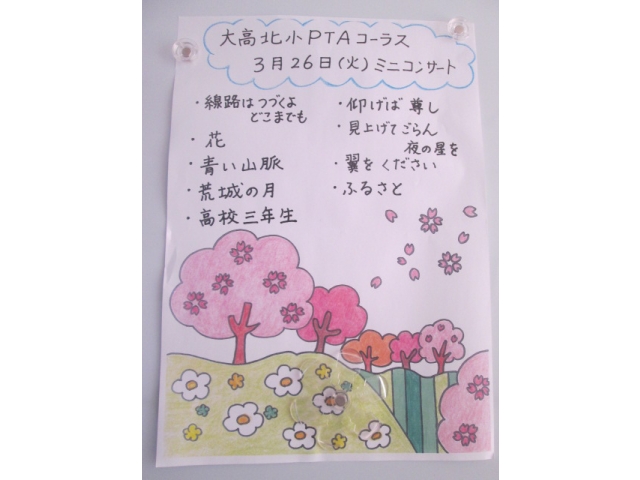 大高北小PTAコーラス
3月26日(火)ミニコンサート
・線路はつづくよ
どこまでも
・花
・青い山脈
・荒城の月
・高校三年生
・仰げば尊し
・見上げてごらん
夜の星を
・翼をください
・ふるさと